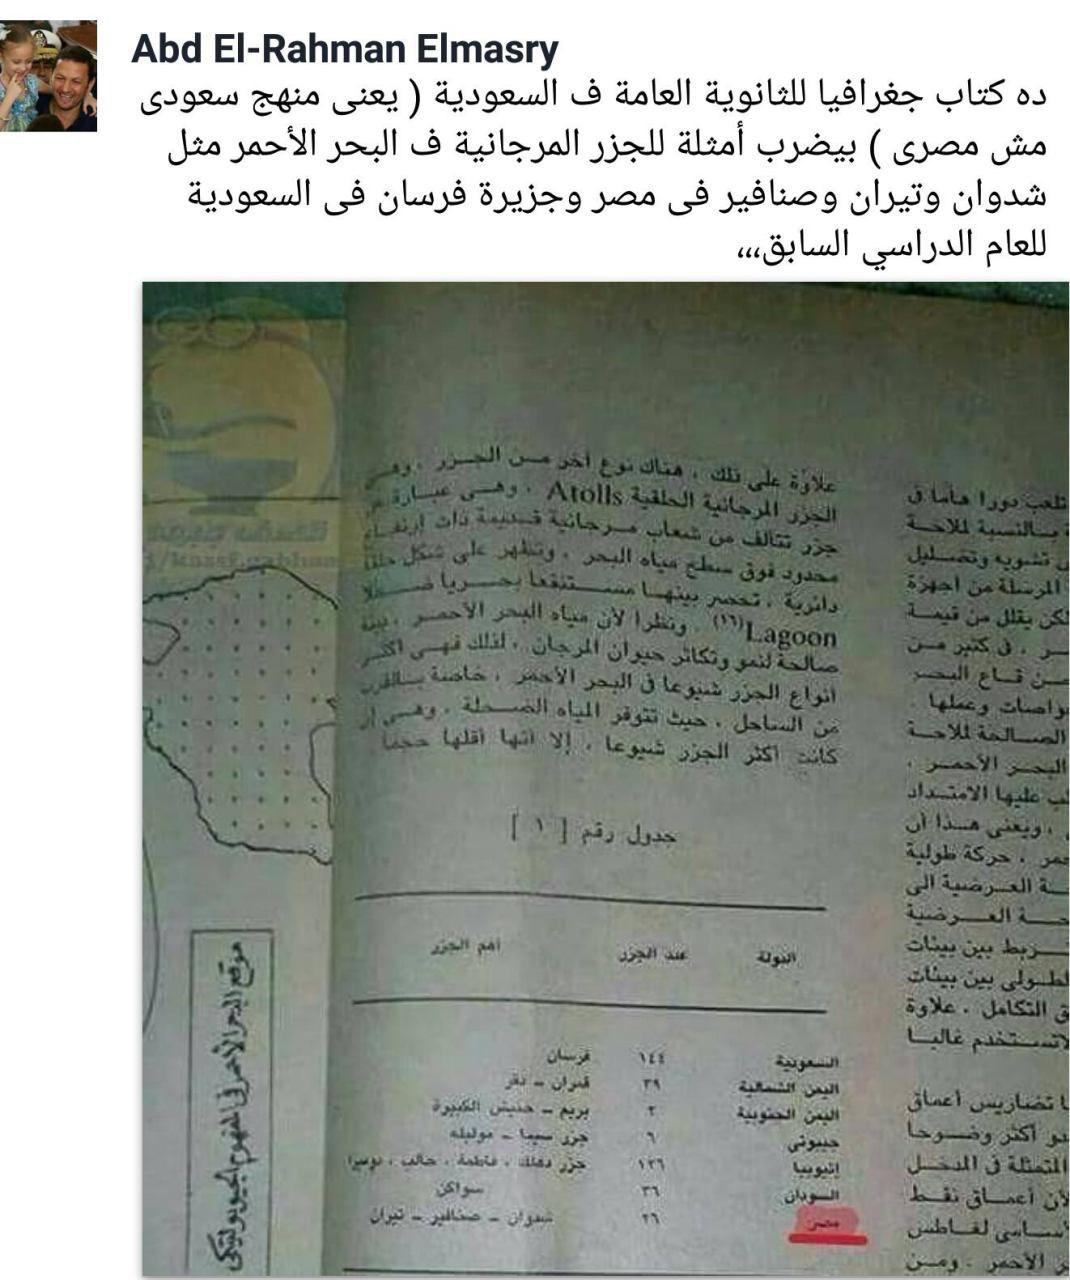 Abd El-Rahman Elmasry
ده كتاب جغرافيا للثانوية العامة ف السعودية ( يعنى منهج سعودى
مش مصرى ) بيضرب أمثلة للجزر المرجانية ف البحر الأحمر مثل
شدوان وتيران وصنافير فى مصر وجزيرة فرسان فى السعودية
للعام الدراسي السابق،،،
علاوة على ذلك ، هناك نوع آخر من الجزر ، وهي
الجزر المرجانية الحلقية Atolls ، وهى عبارة عن
جزر تتألف من شعاب مرجانية قديمة ذات ارتفاع
محدود فوق سطح مياه البحر ، وتظهر على شكل
دائرية ، تحصر بينها مستنقعا بحريا ضحلا
Lagoon (١٦) ونظرا لأن مياه البحر الأحمر ، بيئة
صالحة لنمو وتكاثر حيوان المرجان ، لذلك فهى أكثر
أنواع الجزر شيوعا فى البحر الأحمر ، خاصة بالقرب
من الساحل ، حيث تتوفر المياه الضحلة ، وهى إن
كانت أكثر الجزر شيوعا ، إلا أنها أقلها حجما
جدول رقم [ ١ ]
الدولة عدد الجزر أهم الجزر
السعودية ١٤٤ فرسان
اليمن الشمالية ٣٩ قمران –
اليمن الجنوبية ٢ بريم – حنيش الكبيرة
جيبوتى ٦ جزر سيبا – موليله
اثيوبيا ١٢٦ جزر دهلك ، فاطمة ، حالب ،
السودان ٣٦ سواكن
مصر ٢٦ شدوان – صنافير – تيران
تلعب دورا هاما فى
بالنسبة للملاحة
تشويه وتضليل
المرسلة من أجهزة
لكن يقلل من قيمة
، فى كثير من
من قاع البحر
الصالحة للملاحة
البحر الأحمر ،
عليها الامتداد
، ويعنى هذا أن
، حركة طولية
العرضية الى
العرضية
يربط بين بيئات
بين بيئات
التكامل ، علاوة
تستخدم غالبا
تضاريس أعماق
أكثر وضوحا
المتمثلة فى المدخل
أعماق نقط
لغاطس
الأحمر ، ومن
موقع البحر الأحمر فى المفهوم الجيوبولتيكى